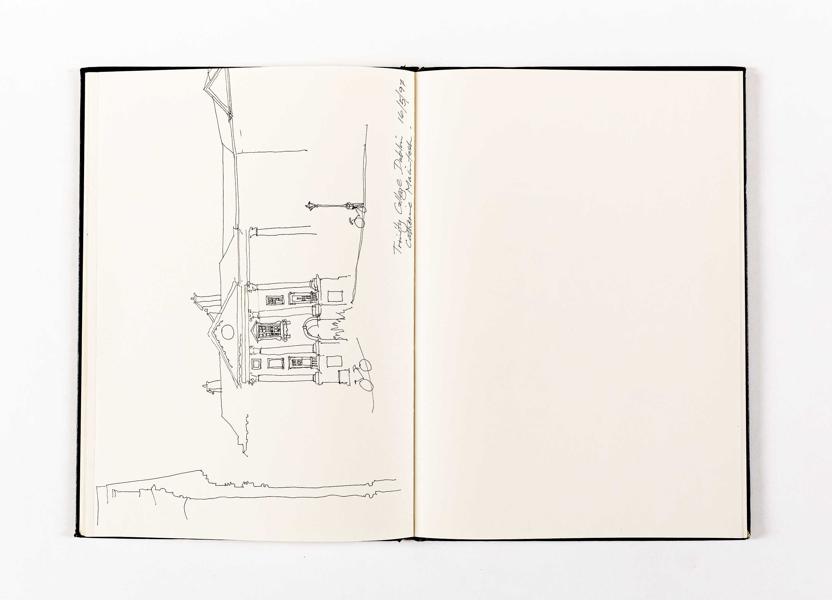 Trinity College Dublin 16/5/97
Catherine MacIntosh.